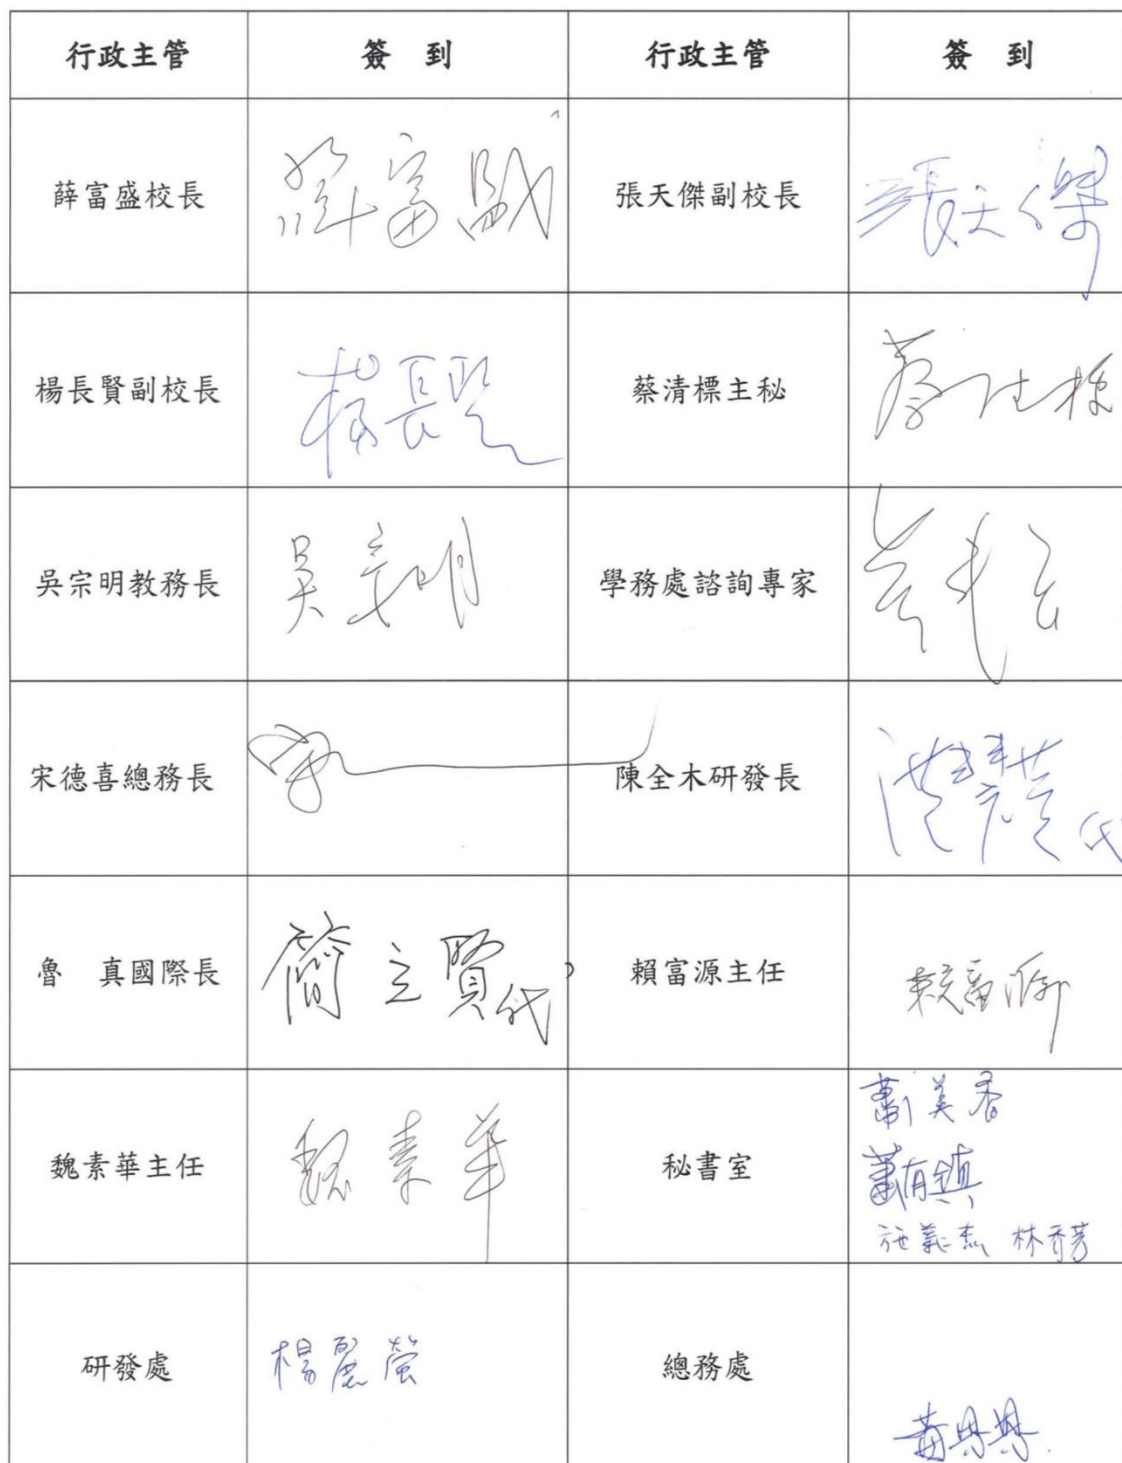 行政主管 簽到 行政主管 簽到
薛富盛校長 薛富盛 張天傑副校長 張天傑
楊長賢副校長 楊長賢 蔡清標主秘
吳宗明教務長 吳宗明 學務處諮詢專家
宋德喜總務長 宋 陳全木研發長 代
魯 真國際長 簡立賢代 賴富源主任 賴富源
魏素華主任 魏素華 秘書室 蕭美香
蕭有鎮
林秀芳
研發處 楊麗瑩 總務處